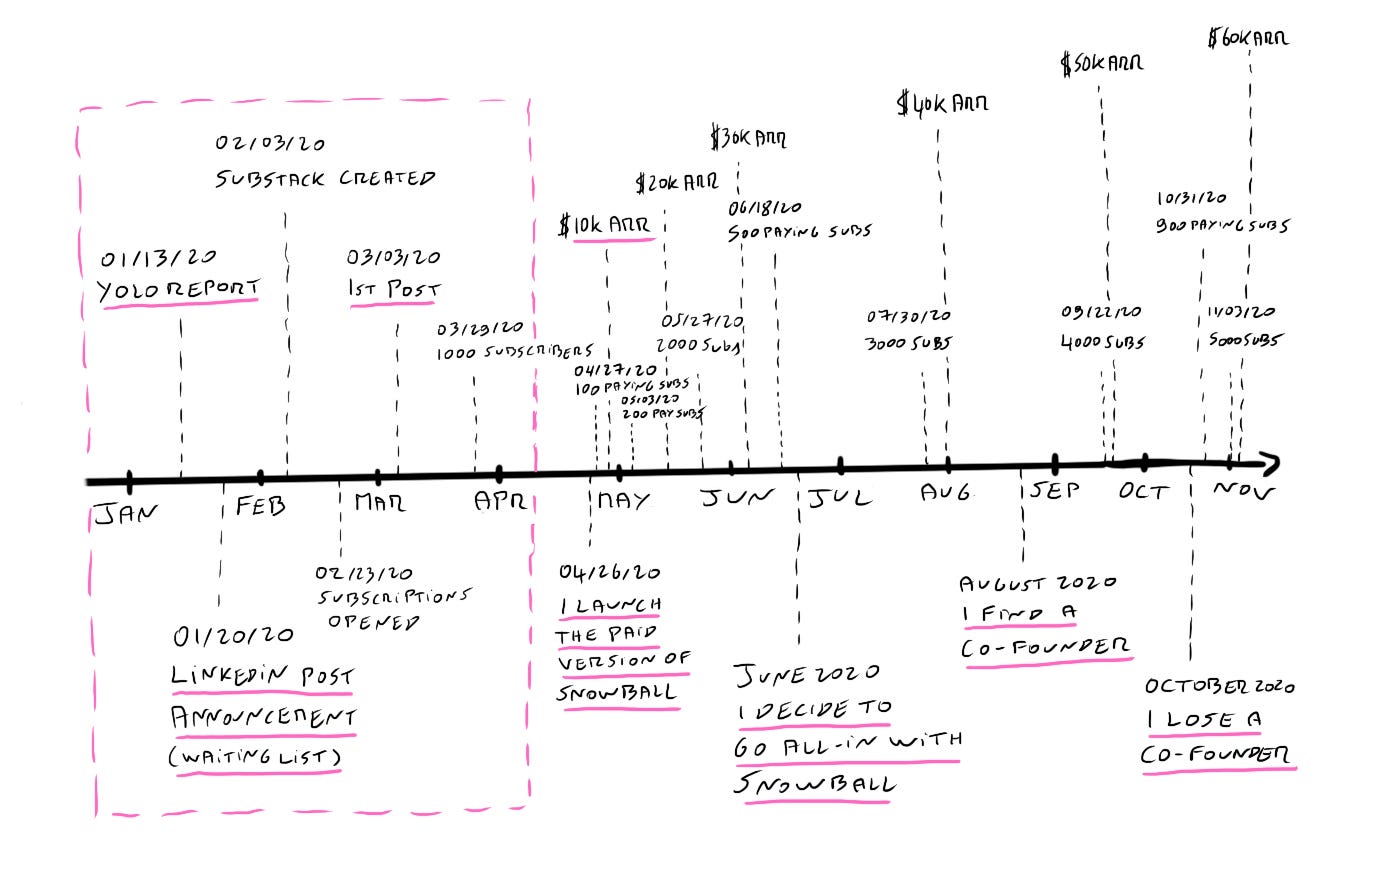 $60K ARR
$50K ARR
$40K ARR
$30K ARR
$20K ARR
$10K ARR
02/03/20
SUBSTACK CREATED
01/13/20
YOLO REPORT
03/03/20
1ST POST
03/29/20
1000 SUBSCRIBERS
04/27/20
100 PAYING SUBS
05/03/20
200 PAY SUBS
05/27/20
2000 SUBS
06/18/20
500 PAYING SUBS
07/30/20
3000 SUBS
09/22/20
4000 SUBS
10/31/20
900 PAYING SUBS
11/03/20
5000 SUBS
JAN
FEB
MAR
APR
MAY
JUN
JUL
AUG
SEP
OCT
NOV
01/20/20
LINKEDIN POST
ANNOUNCEMENT
(WAITING LIST)
02/23/20
SUBSCRIPTIONS
OPENED
04/26/20
I LAUNCH
THE PAID
VERSION OF
SNOWBALL
JUNE 2020
I DECIDE TO
GO ALL-IN WITH
SNOWBALL
AUGUST 2020
I FIND A
CO-FOUNDER
OCTOBER 2020
I LOSE A
CO-FOUNDER